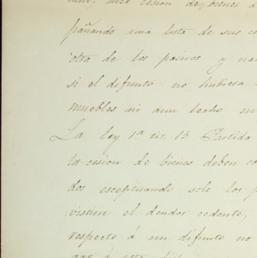 cesion de bienes
pañando una lista de sus
otra de los
si el difunto no hubiera
muebles ni aun lecho
La ley 1ª tit. 15 Partida
la cesion de bienes deben
dos esceptuando solo los
vistien el deudor cedente,
respecto á un difunto no